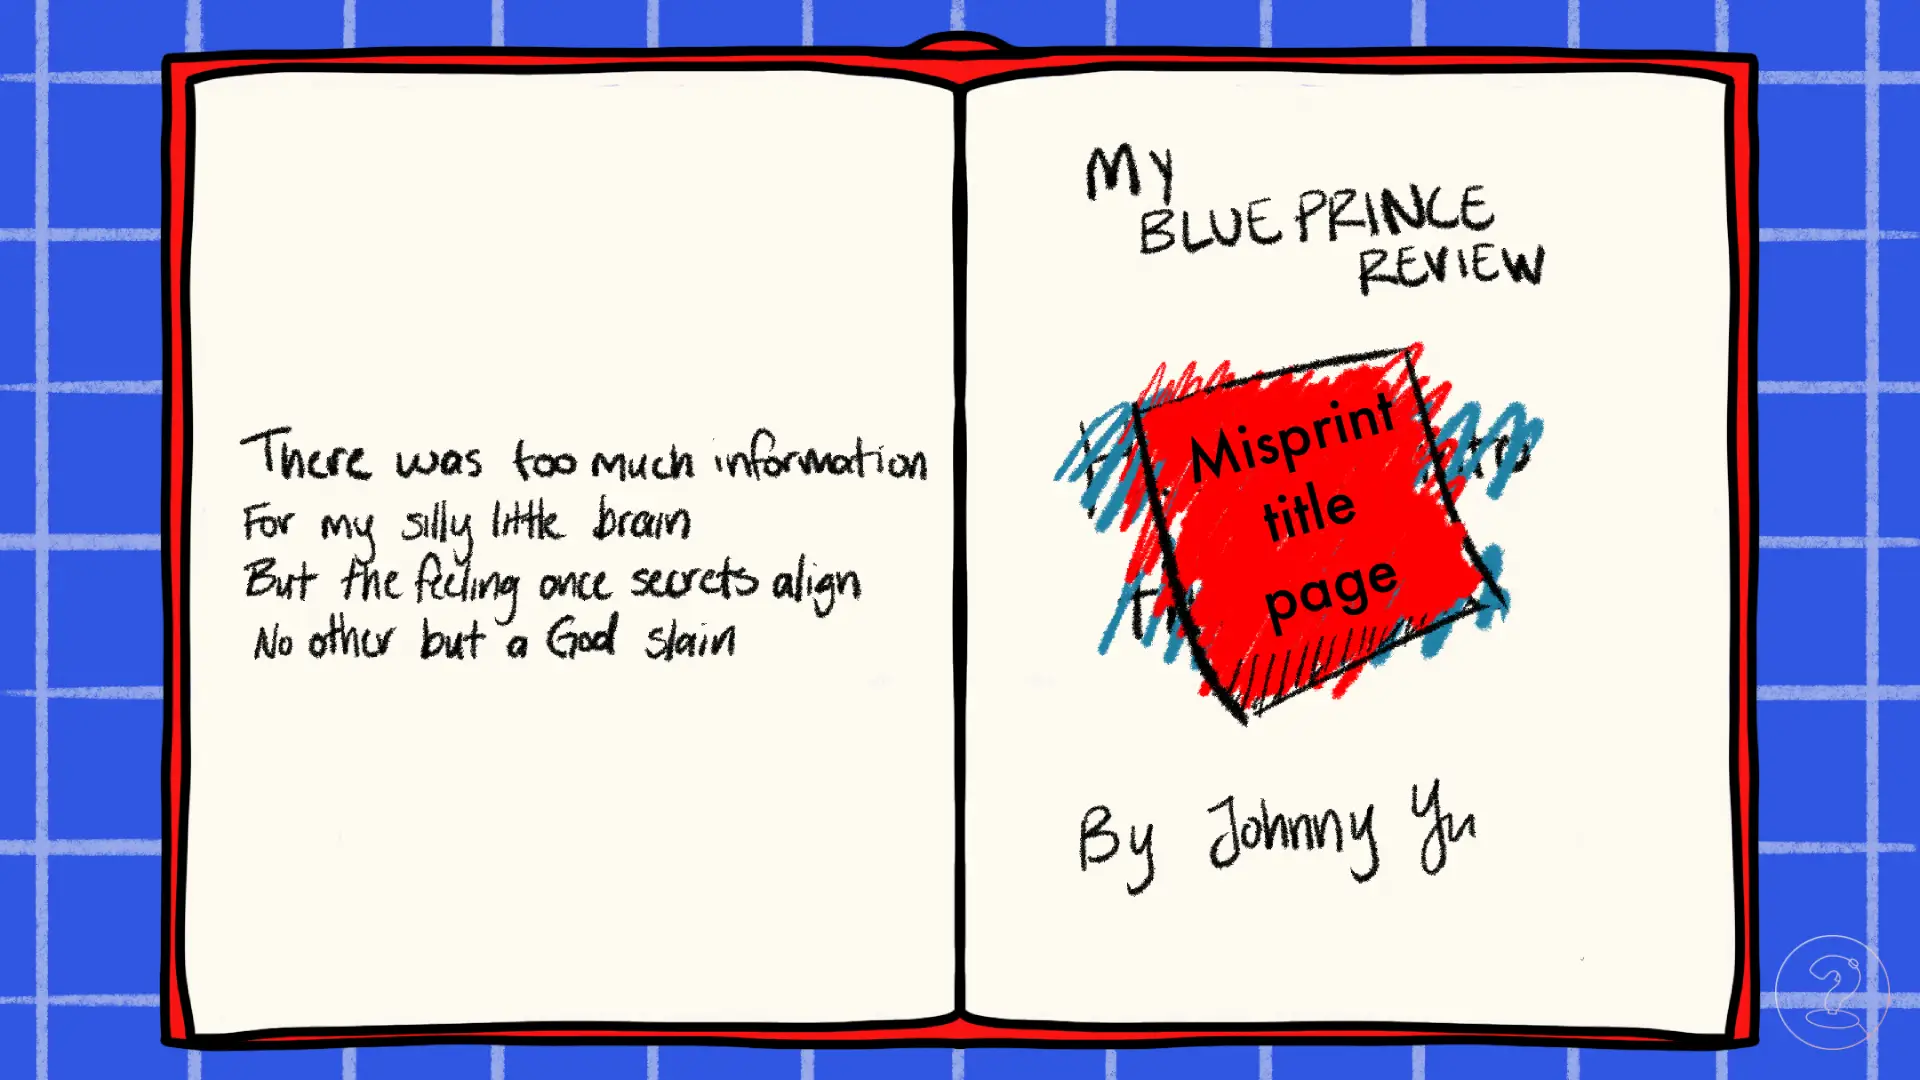 There was too much information
For my silly little brain
But the feeling once secrets align
No other but a God slain
My
BLUE PRINCE
REVIEW
Misprint
title
page
By Johnny Yu